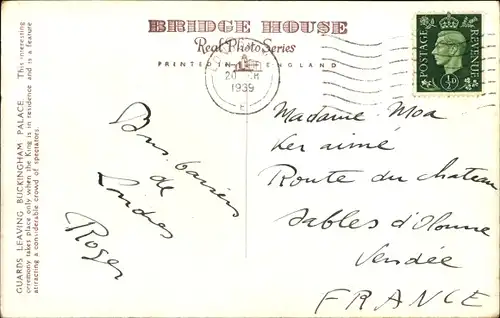 BRIDGE HOUSE
Real Photo Series
PRINTED IN ENGLAND
GUARDS LEAVING BUCKINGHAM PALACE. This interesting
ceremony takes place only when the King is in residence and is a feature
attracting a considerable crowd of spectators.
1939
E
POSTAGE
REVENUE
½D
Bons baisers
de
Londres
Roger
Madame Moa
Ker aimé
Route du chateau
Sables d'Olonne
Vendée
FRANCE